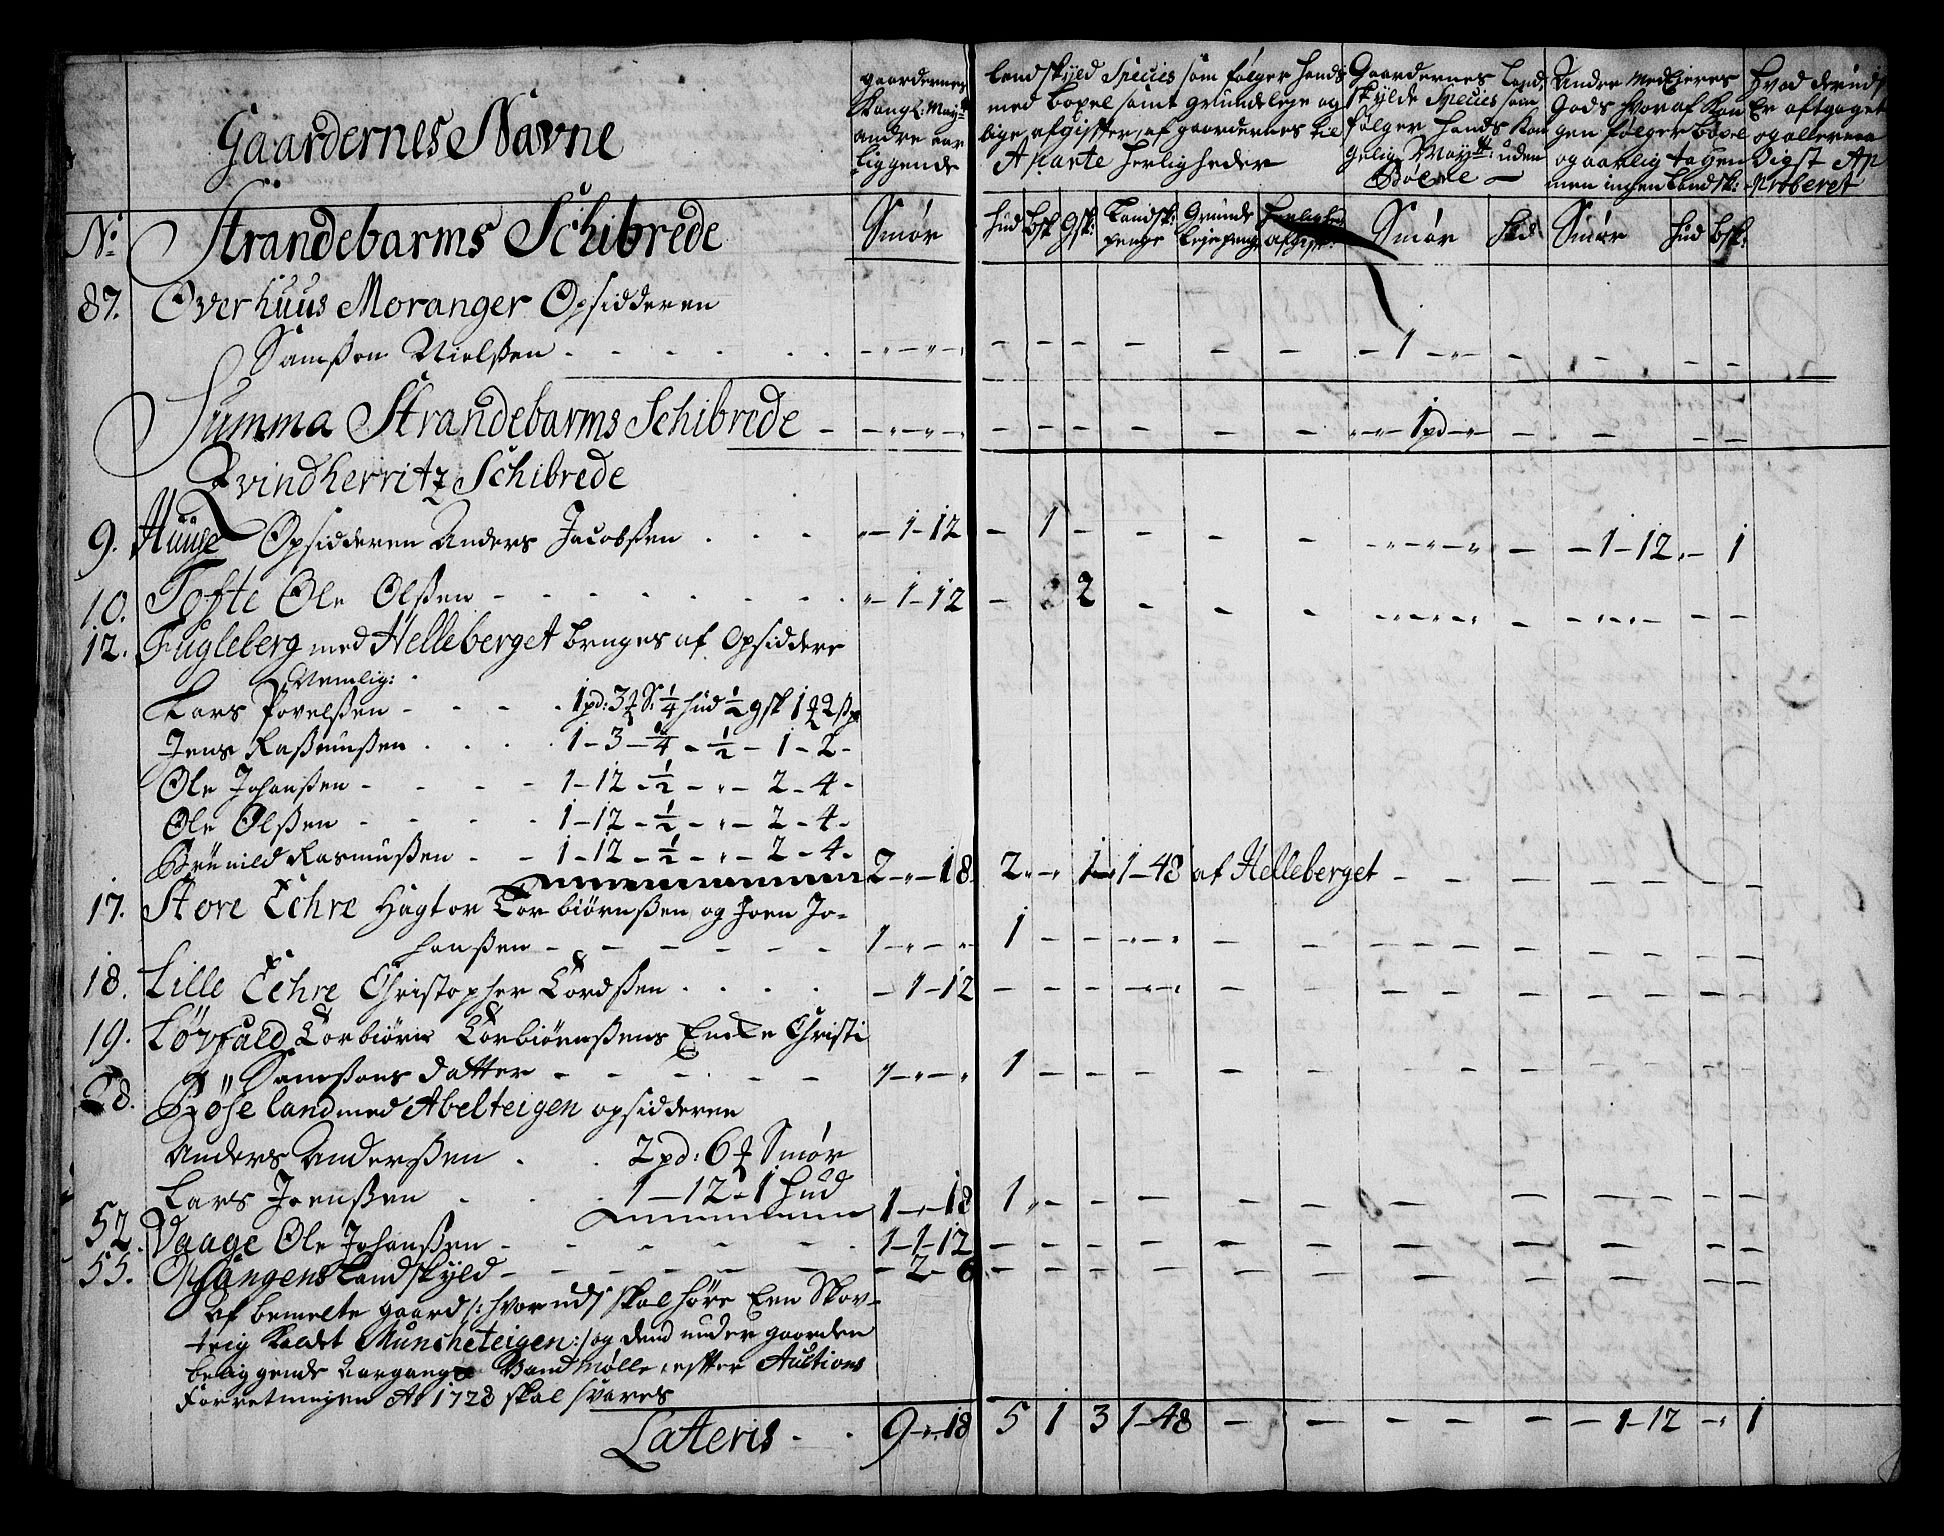 Gaardernes Navne
gaardernes
Kongl: Mayts
andre ear
liggende
Landskyld Species som følger hands
med bopel samt grundleje og
lige afgiffter, af gaardernes til
Aparte herligheder
Gaardernes Land
skylde Species som
følger hands Kon
gelig Mayts: uden
Bøxle
Andre Medejeres
Gods hvoraf Kon
gen følger bøxel
og aarlig tagen
men ingen Landsk:
Hvad derudj
Er aftaget
og allernaa
digst Ap
proberet
No
Strandebarms Schibrede
Smør
Hud Bsk Gsk: Landsk: penge Grunde lejepeng Herligheds afgift:
Smør Hud Smør Hud Bsk:
87. Overhuus Moranger Opsidderen
Samsøn Nielsen - 1 -
Summa Strandebarms Schibrede - 1 pd -
Qvindherritz Schibrede
9. Huuge Opsidderen Anders Jacobsen - 1-12 - 1 - 1-12 - 1
10. Tofte Ole Olsen - 1-12 - 2
12. Fugleberg med Helleberget bruges af Opsiddere
Nemlig:
Lars Povelsen - 1 pd: 3 S: 1/4 hud 1/2 gsk 1 2
Jens Rasmusen 1-3-1/4-1/2-1-2-
Ole Johansen 1-12-1/2-"-2-4-
Ole Olsen 1-12-1/2-"-2-4-
Brünild Rasmusen 1-12-1/2-"-2-4- 2-"-18 2 - 1 1-48 af Helleberget
17. Store Echre Hagtor Torbiørnsen og Joen Jo-
hansen 1-"-" 1
18. Lille Echre Christopher Tordsen - 1-12
19. Løvfald Torbiørn Torbiørnsens Encke Christi
Samsons datter 1-"-" 1
28. Røseland med Abelteigen opsidderne
Anders Andersen 2 pd: 6 Smør
Lars Joensen 1-12-1 hud 1-"-18 1
52. Vaage Ole Johansen 1-1-12
55. Opsangens Landskyld - 2-6
af bemelte gaard /: hvorudj skal høre Een Skov-
teig Kaldt Muncheteigen :/ og dend under gaarden
beliggende Vand Mølle, effter Auctions
Forretningen Ao 1728 skal svares
Lateris 9-"-18 5 1 3 1-48 - 1-12 - 1